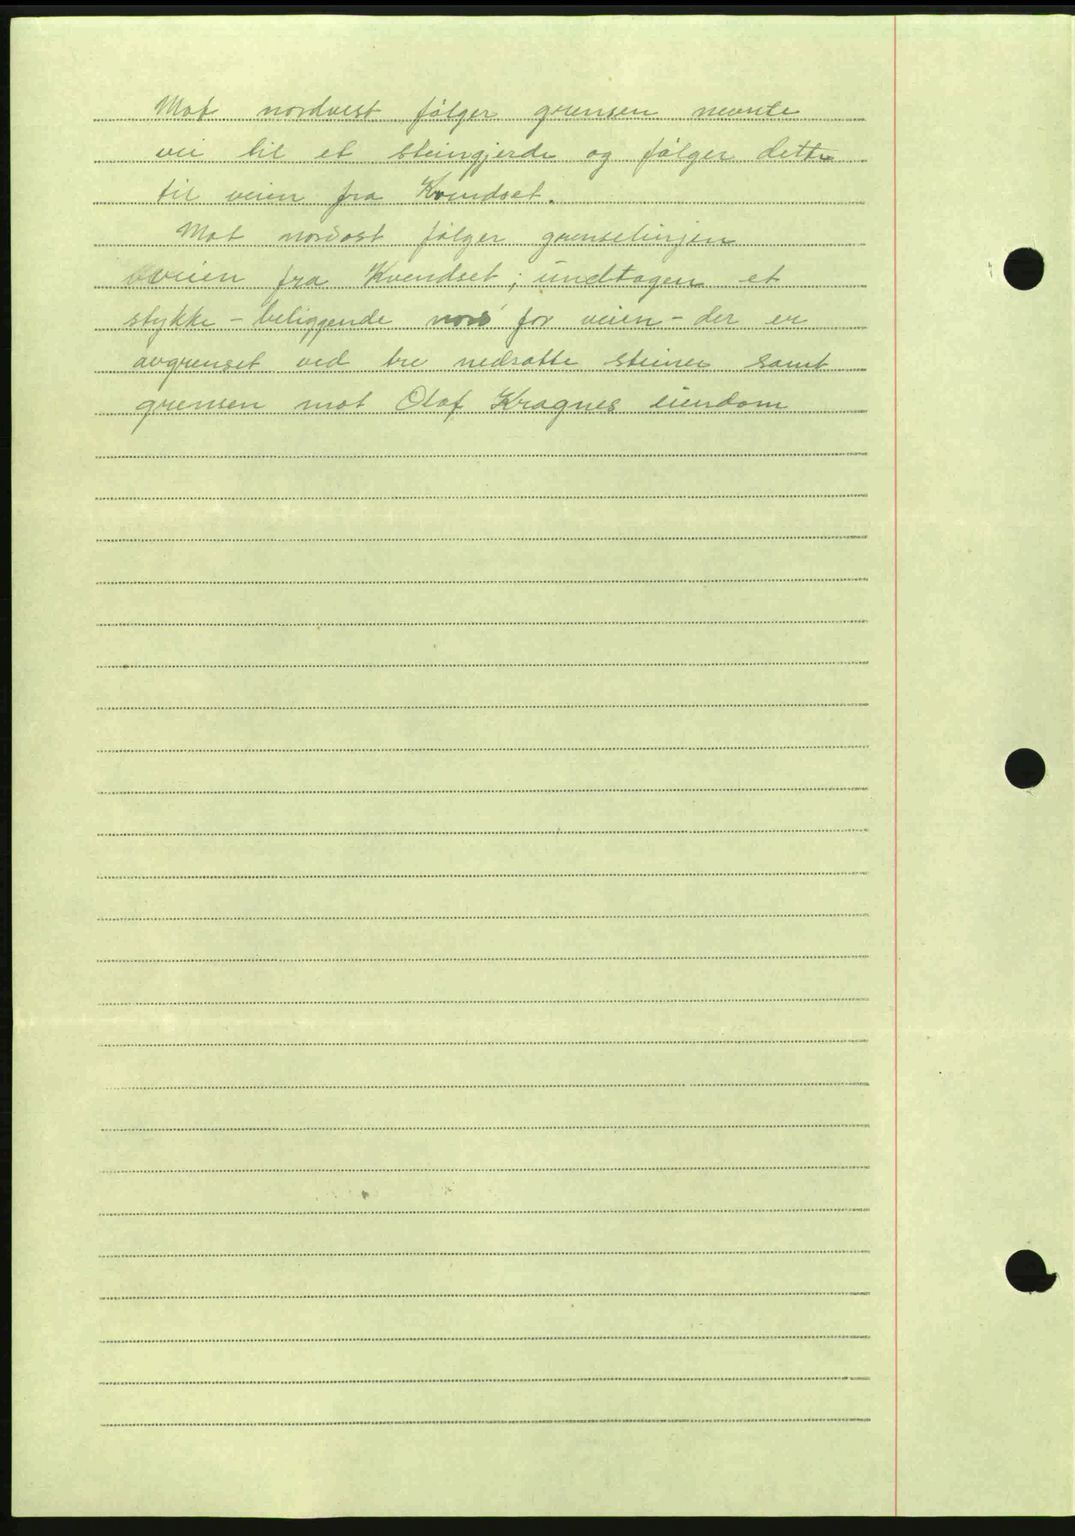 Mot nordvest følger grensen nevnte
vei til et steingjerde og følger dette
til veien fra Kvendset.
Mot nordost følger grenselinjen
veien fra Kvendset; undtagen et
stykke - beliggende nord for veien - der er
avgrenset ved tre nedsatte steiner samt
grensen mot Olaf Kragnes eiendom